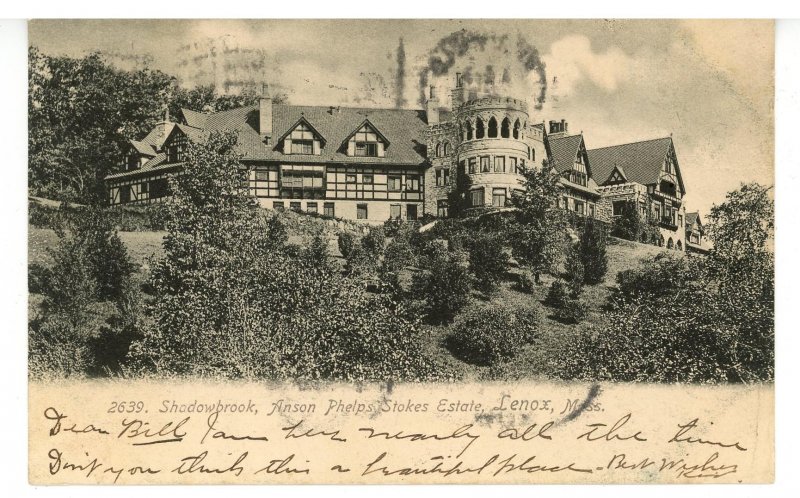 2639. Shadowbrook, Anson Phelps Stokes Estate, Lenox, Mass.
Dear Bill I am here nearly all the time
Don't you think this a beautiful place - Best Wishes